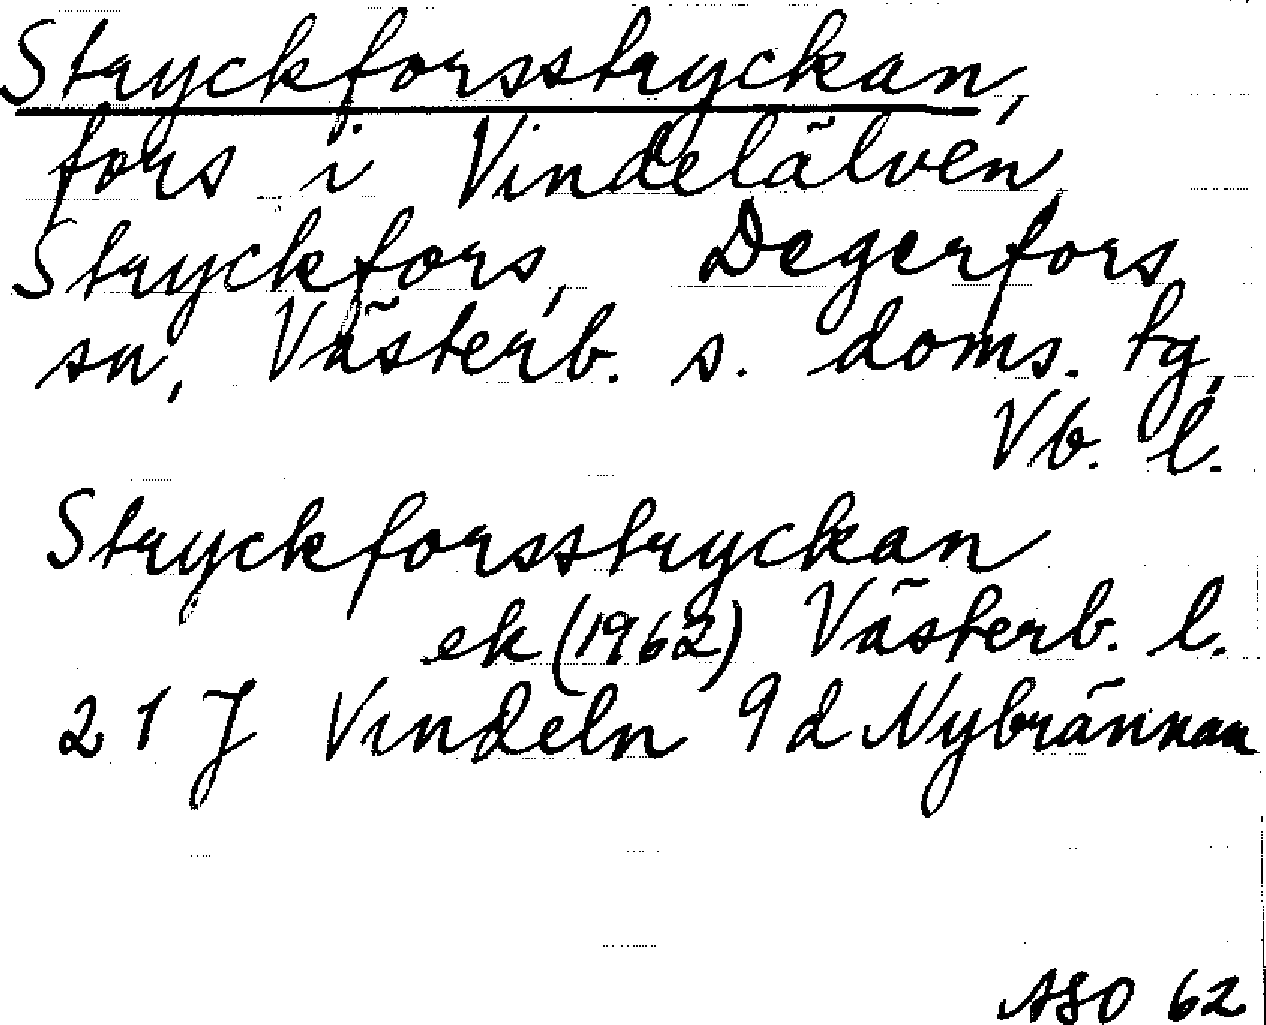 Stryckforsstryckan,
fors i Vindelälven
Stryckfors, Degerfors
sn, Västerb. s. doms. tg,
Vb. l.
Stryckforsstryckan
ek (1962) Västerb. l.
21 J Vindeln 9 d Nybrännan
ASO 62